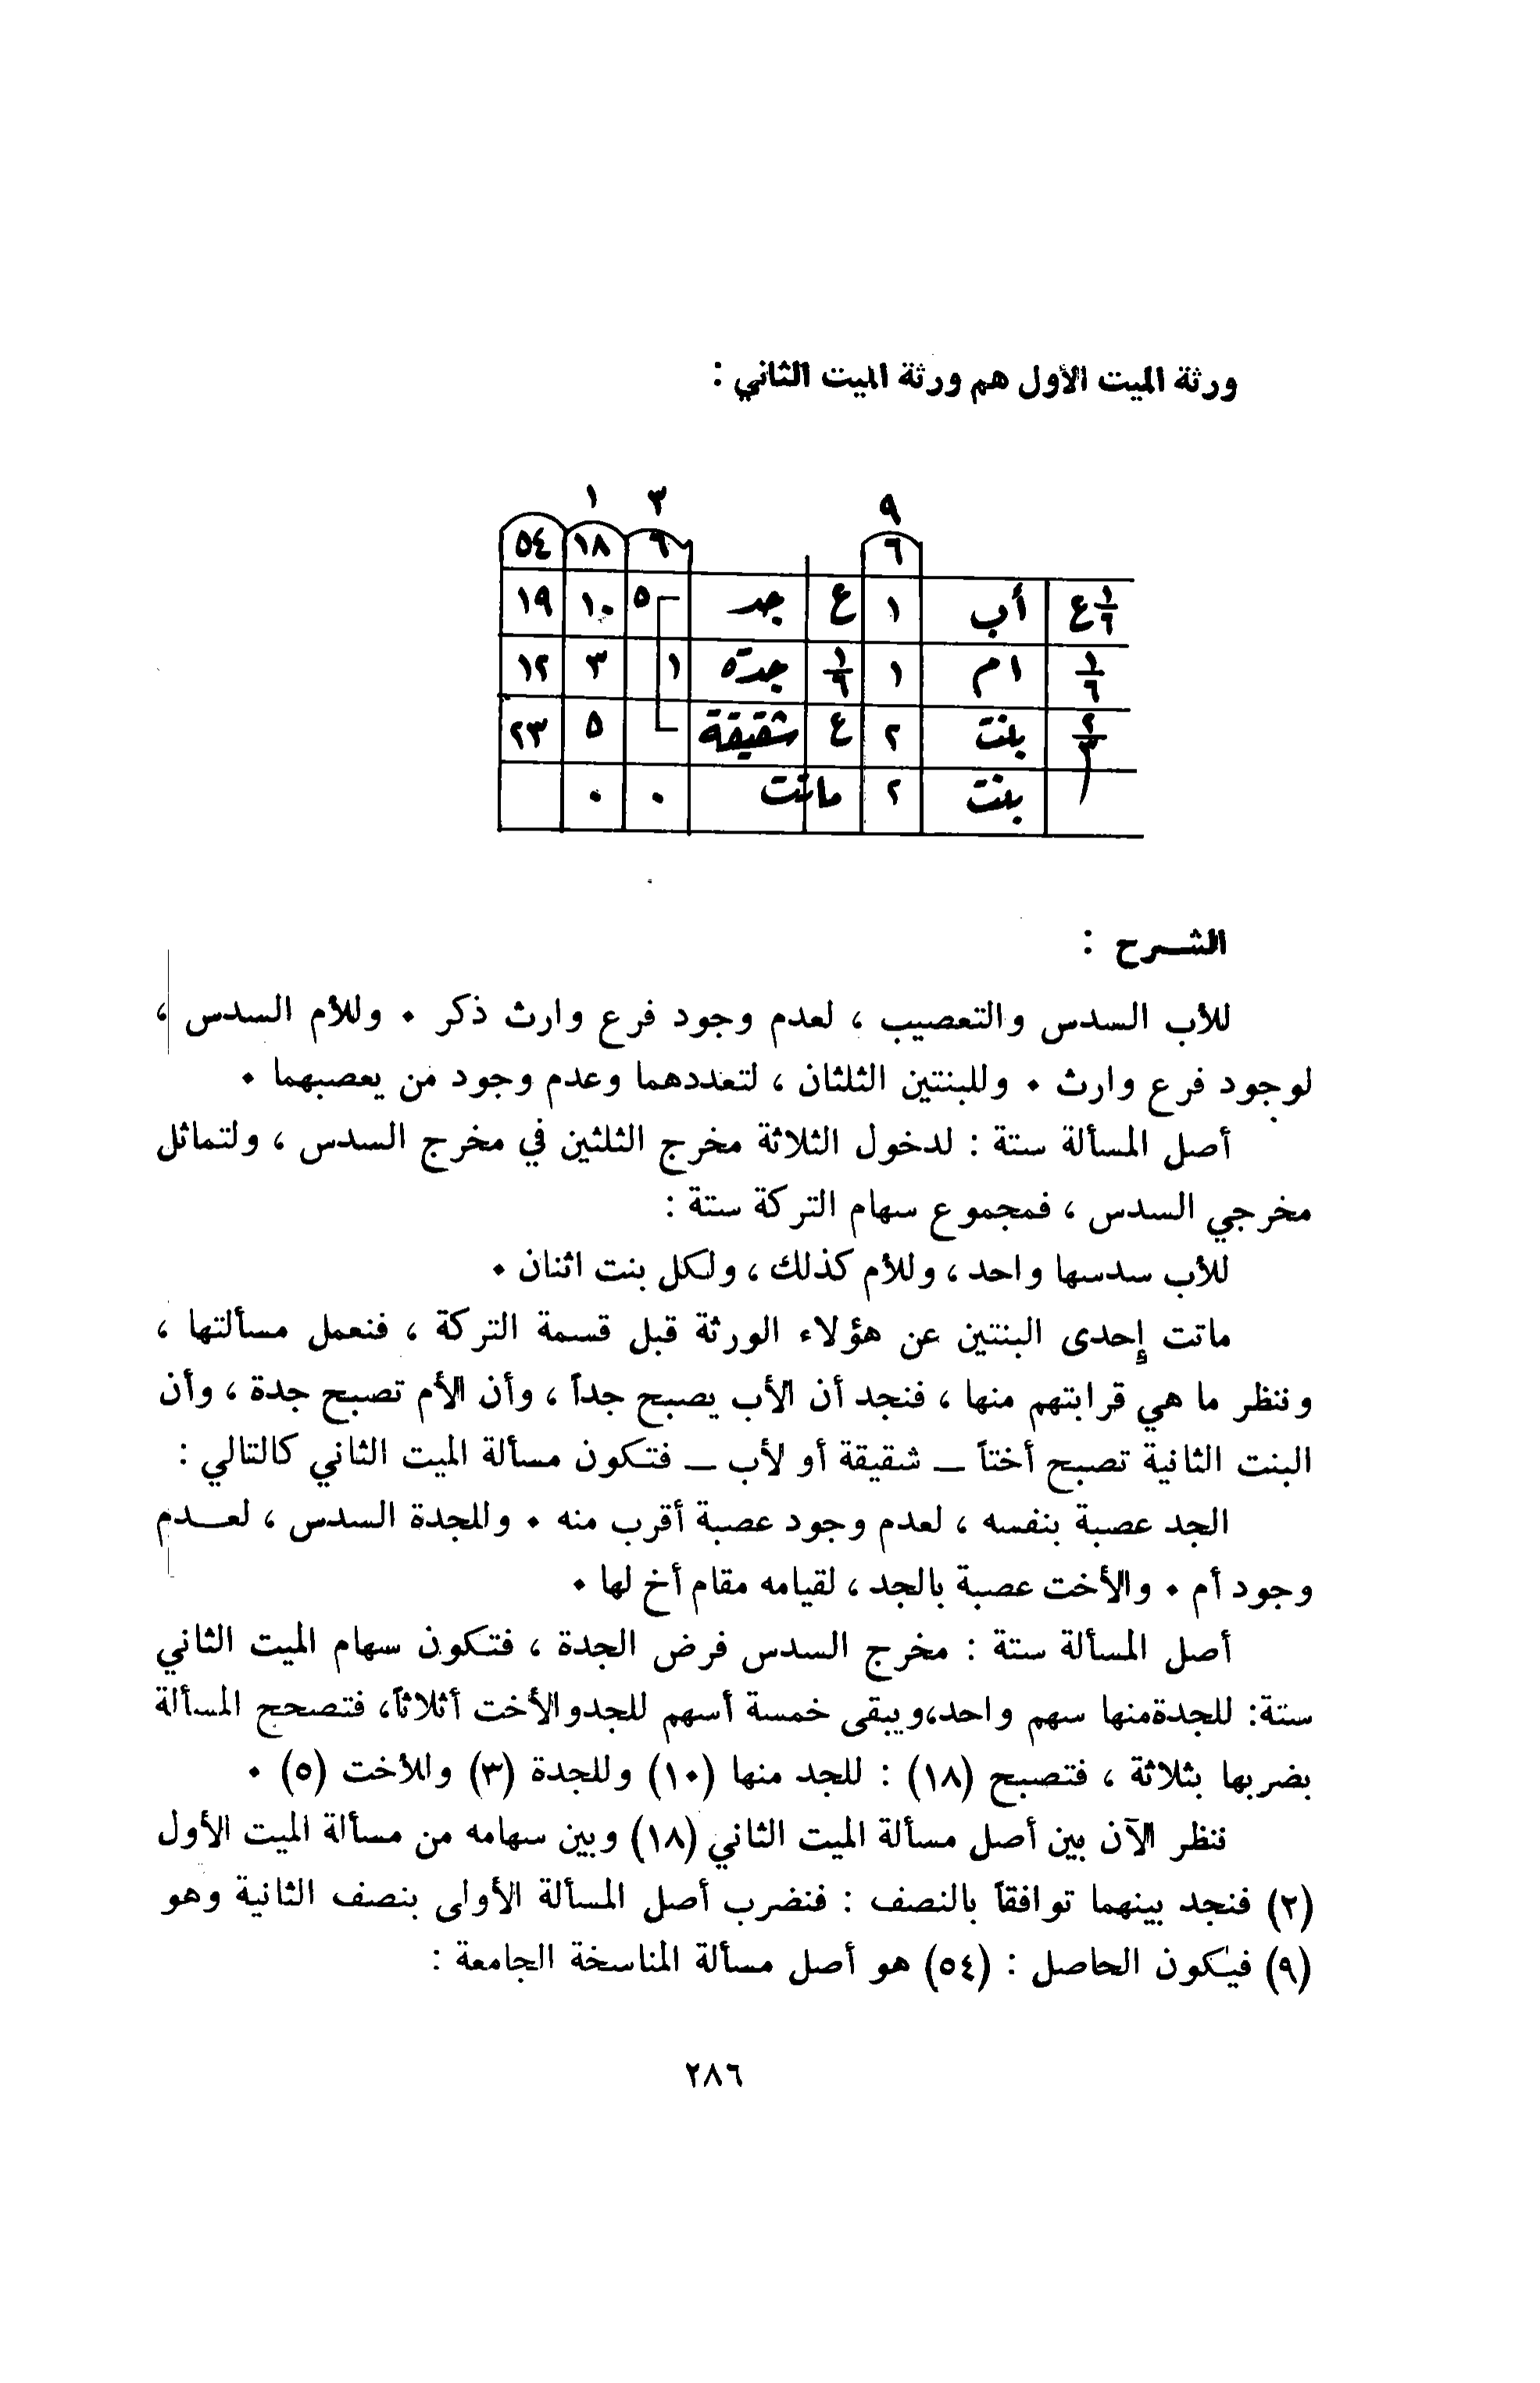 ورثة الميت الأول هم ورثة الميت الثاني :
٩ ٣ ١
٦ ٦ ١٨ ٥٤
١/٦ ع أب ١ ع جد ٥ ١٠ ١٩
١/٦ ام ١ ١/٦ جدة ١ ٣ ١٢
٢/٣ بنت ٢ ع شقيقة ٥ ٢٣
بنت ٢ ماتت ٠ ٠
الشرح :
للأب السدس والتعصيب ، لعدم وجود فرع وارث ذكر ٠ وللأم السدس ،
لوجود فرع وارث ٠ وللبنتين الثلثان ، لتعددهما وعدم وجود من يعصبهما ٠
أصل المسألة ستة : لدخول الثلاثة مخرج الثلثين في مخرج السدس ، ولتماثل
مخرجي السدس ، فمجموع سهام التركة ستة :
للأب سدسها واحد ، وللأم كذلك ، ولكل بنت اثنان ٠
ماتت إحدى البنتين عن هؤلاء الورثة قبل قسمة التركة ، فنعمل مسألتها ،
وننظر ما هي قرابتهم منها ، فنجد أن الأب يصبح جداً ، وأن الأم تصبح جدة ، وأن
البنت الثانية تصبح أختاً ــ شقيقة أو لأب ــ فتكون مسألة الميت الثاني كالتالي :
الجد عصبة بنفسه ، لعدم وجود عصبة أقرب منه ٠ وللجدة السدس ، لعــدم
وجود أم ٠ والأخت عصبة بالجد ، لقيامه مقام أخ لها ٠
أصل المسألة ستة : مخرج السدس فرض الجدة ، فتكون سهام الميت الثاني
ستة: للجدةمنها سهم واحد،ويبقى خمسة أسهم للجدوالأخت أثلاثاً، فتصحح المسألة
بضربها بثلاثة ، فتصبح (١٨) : للجد منها (١٠) وللجدة (٣) وللأخت (٥) ٠
ننظر الآن بين أصل مسألة الميت الثاني (١٨) وبين سهامه من مسألة الميت الأول
(٢) فنجد بينهما توافقاً بالنصف : فنضرب أصل المسألة الأولى بنصف الثانية وهو
(٩) فيكون الحاصل : (٥٤) هو أصل مسألة المناسخة الجامعة :
٢٨٦